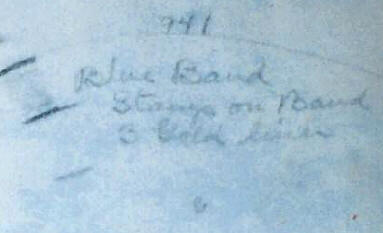 941
Blue Band
Stamp on Band
3 Gold lines
6